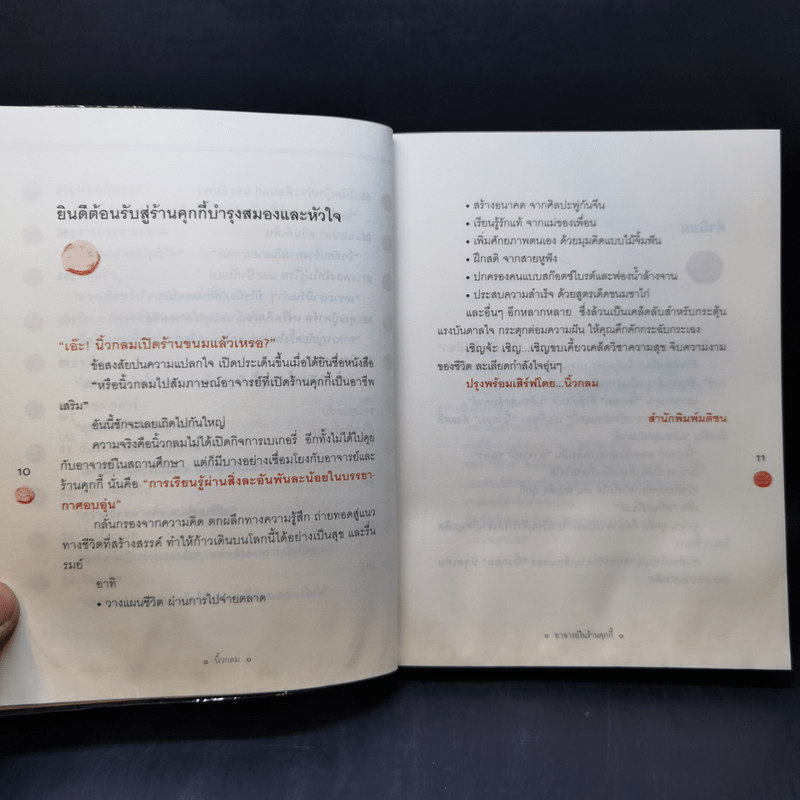 ยินดีต้อนรับสู่ร้านคุกกี้บำรุงสมองและหัวใจ
"เอ๊ะ! นิ้วกลมเปิดร้านขนมแล้วเหรอ?"
ข้อสงสัยปนความแปลกใจ เปิดประเด็นขึ้นเมื่อได้ยินชื่อหนังสือ
"หรือนิ้วกลมไปสัมภาษณ์อาจารย์ที่เปิดร้านคุกกี้เป็นอาชีพ
เสริม"
อันนี้ชักจะเลยเถิดไปกันใหญ่
ความจริงคือนิ้วกลมไม่ได้เปิดกิจการเบเกอรี่ อีกทั้งไม่ได้ไปคุย
กับอาจารย์ในสถานศึกษา แต่ก็มีบางอย่างเชื่อมโยงกับอาจารย์และ
ร้านคุกกี้ นั่นคือ "การเรียนรู้ผ่านสิ่งละอันพันละน้อยในบรรยา-
กาศอบอุ่น"
กลั่นกรองจากความคิด ตกผลึกทางความรู้สึก ถ่ายทอดสู่แนว
ทางชีวิตที่สร้างสรรค์ ทำให้ก้าวเดินบนโลกนี้ได้อย่างเป็นสุข และรื่น
รมย์
อาทิ
• วางแผนชีวิต ผ่านการไปจ่ายตลาด
10
นิ้วกลม
• สร้างอนาคต จากศิลปะพู่กันจีน
• เรียนรู้รักแท้ จากแม่ของเพื่อน
• เพิ่มศักยภาพตนเอง ด้วยมุมคิดแบบไม้จิ้มฟัน
• ฝึกสติ จากสายหูฟัง
• ปกครองคนแบบสก๊อตช์ไบรต์และฟองน้ำล้างจาน
• ประสบความสำเร็จ ด้วยสูตรเด็ดขนมขาไก่
และอื่นๆ อีกหลากหลาย ซึ่งล้วนเป็นเคล็ดลับสำหรับกระตุ้น
แรงบันดาลใจ กระตุกต่อมความฝัน ให้คุณคึกคักกระฉับกระเฉง
เชิญจ้ะ เชิญ...เชิญขบเคี้ยวเคล็ดวิชาความสุข จิบความงาม
ของชีวิต ละเลียดกำลังใจอุ่นๆ
ปรุงพร้อมเสิร์ฟโดย...นิ้วกลม
สำนักพิมพ์มติชน
11
อาจารย์ในร้านคุกกี้